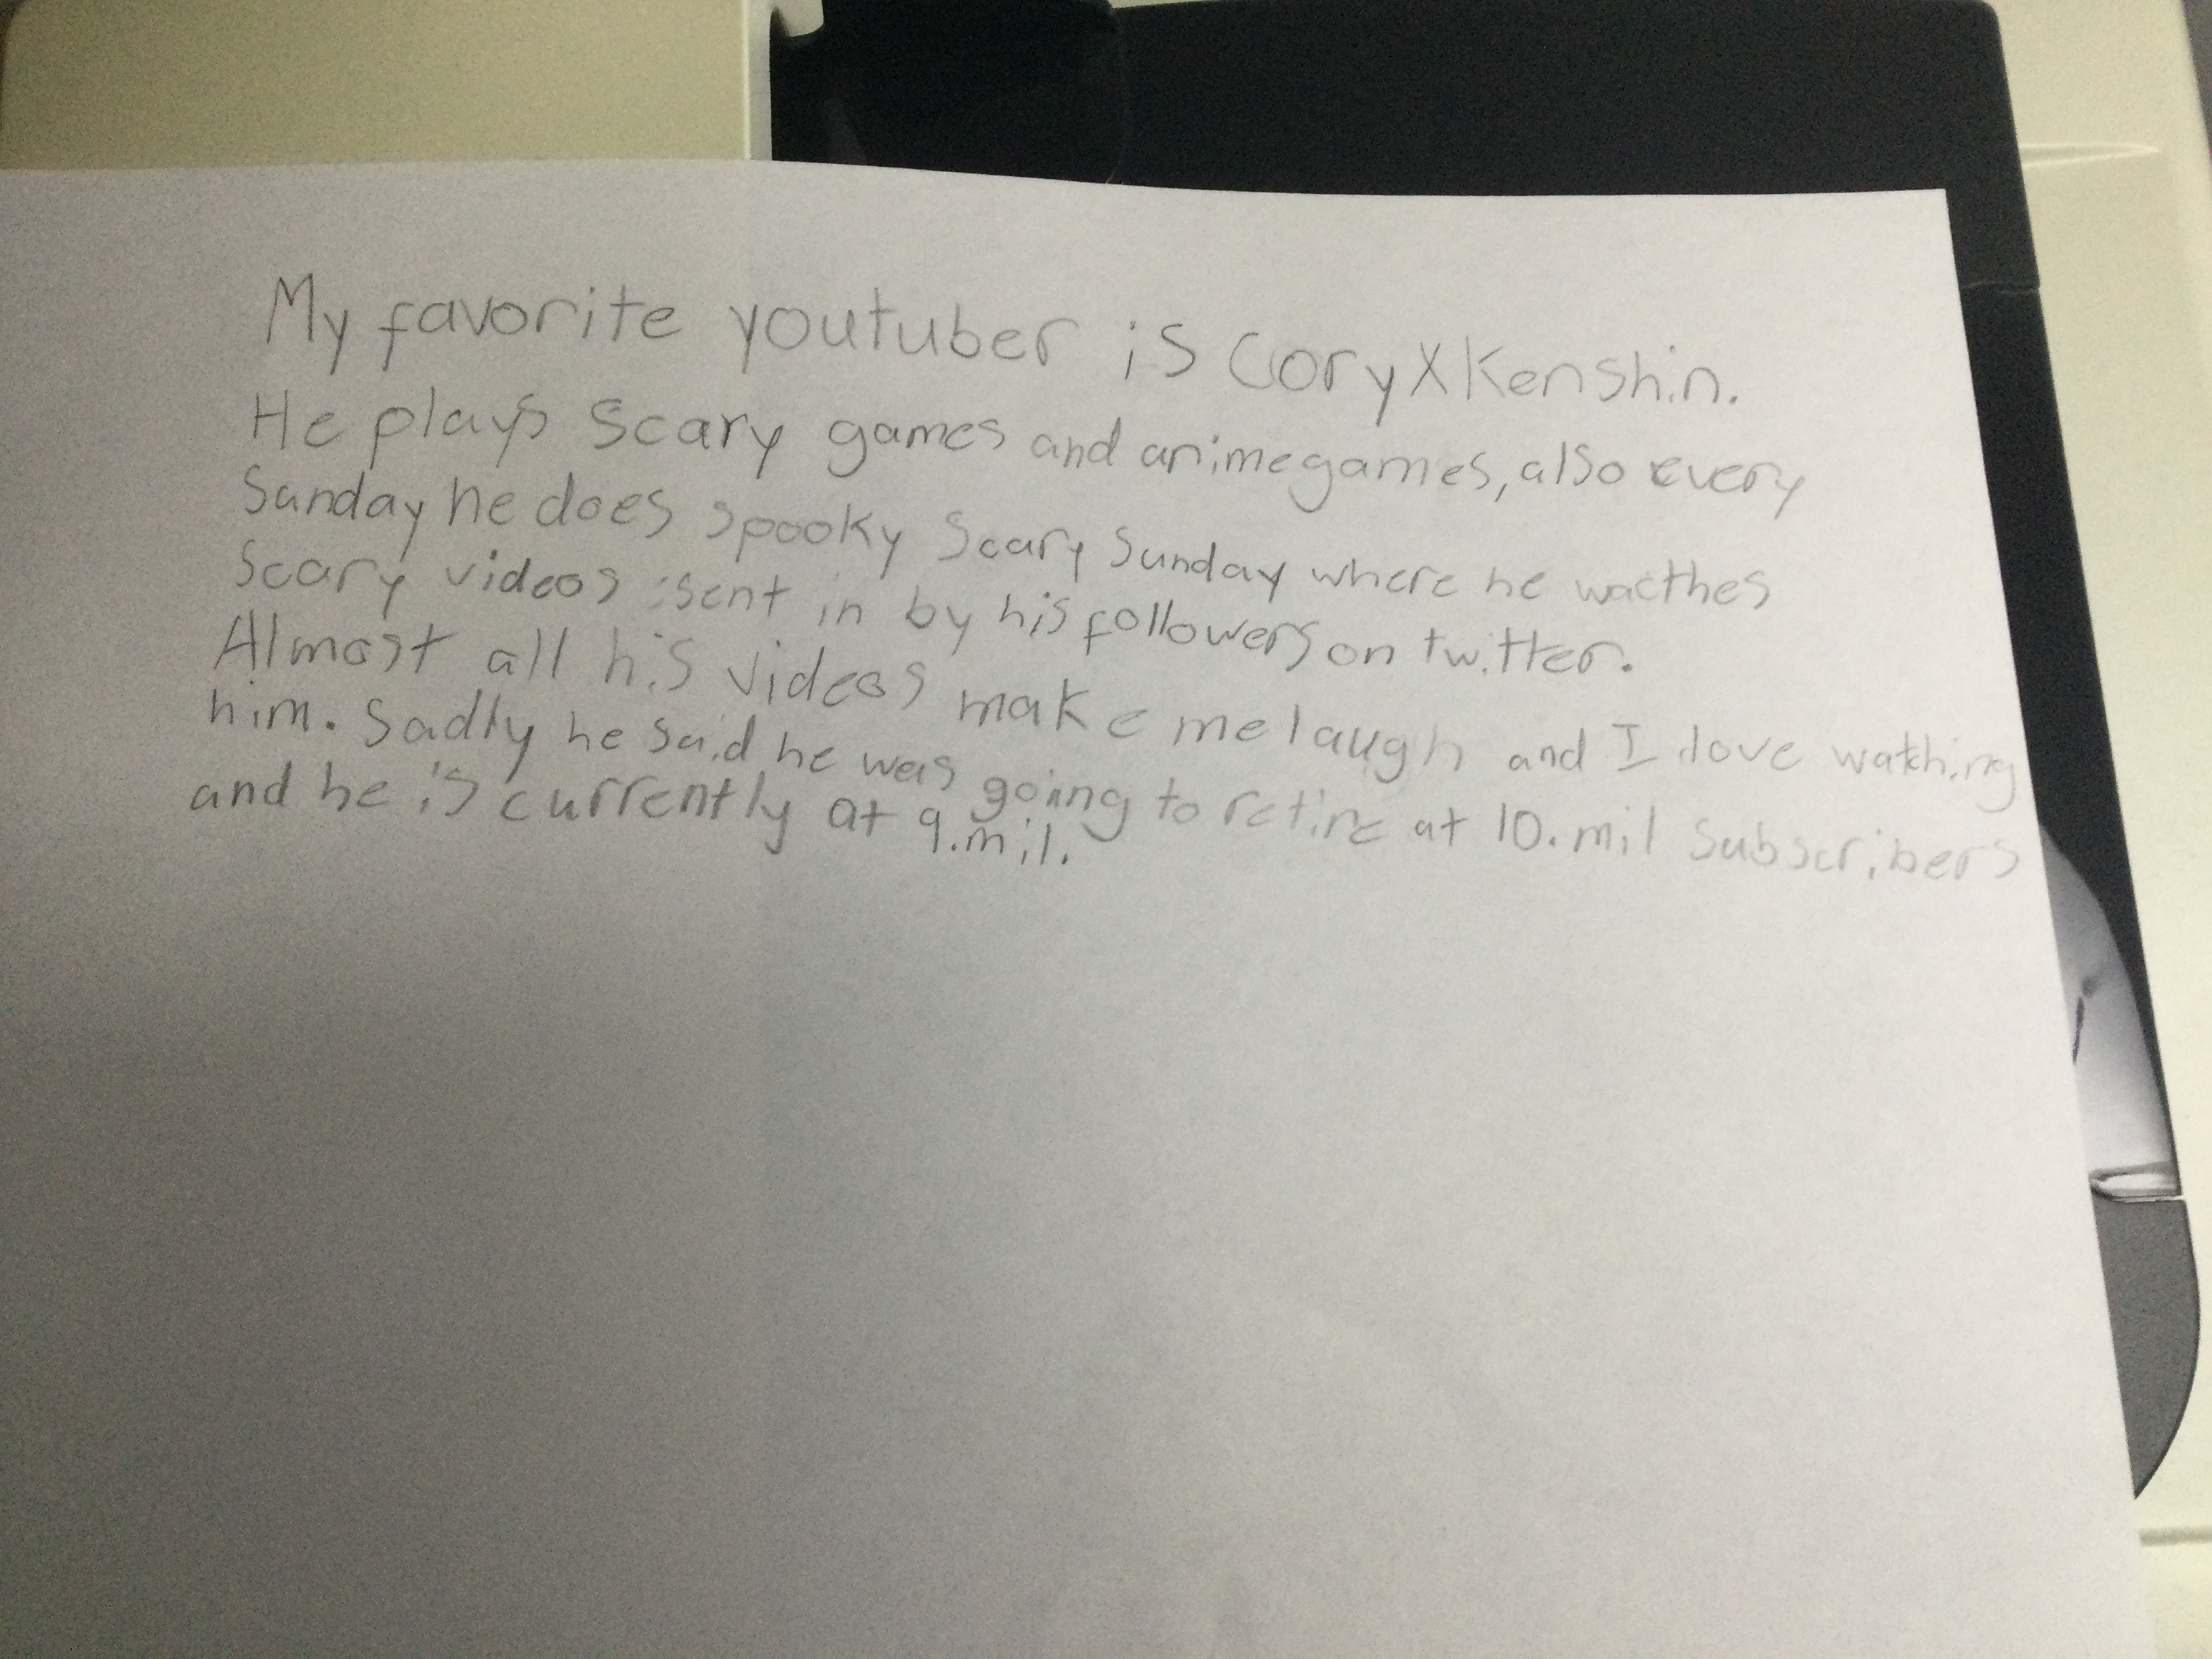 My favorite youtuber is CoryXKenshin.
He plays Scary games and anime games, also every
Sunday he does spooky Scary Sunday where he wacthes
Scary videos sent in by his followers on twitter.
Almost all his videos make me laugh and I love watching
him. Sadly he said he was going to retire at 10.mil Subscribers
and he is currently at 9.mil.